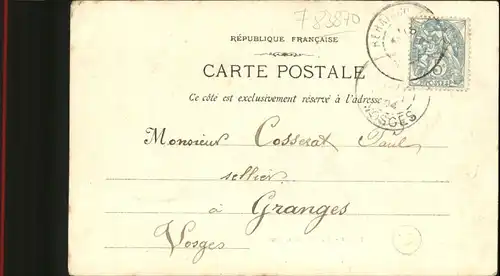 F 83870
RÉPUBLIQUE FRANÇAISE
CARTE POSTALE
Ce côté est exclusivement réservé à l'adresse
VOSGES
Monsieur Cosserat Paul
sellier
à Granges
Vosges